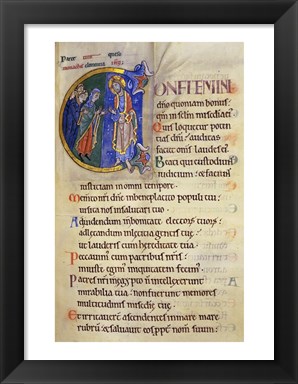 ONFITEMINI
dño quoniam bonus:
qm in sclm misedia ei'.
Quis loquetur poten
tias dñi: auditas
faciet oms laudes ei'.
Beati qui custodiunt
iudicium: & faciunt
iusticiam in omni tempore.
Memento nrī dñe in beneplacito populi tui:
uisita nos in salutari tuo.
Ad uidendum in bonitate electorꝝ tuorꝝ:
ad letandum in leticia gentis tue:
ut lauderis cum hereditate tua.
Peccauim' cum patribus nrīs:
iniuste egim' iniquitatem fecim'.
Patres nrī in egypto ñ intellexerunt
mirabilia tua: non fuerunt memores
multitudinis misedie tue.
Et irritauerunt ascendentes in mare mare
rubrū: & saluauit eos ppt' nom suum: